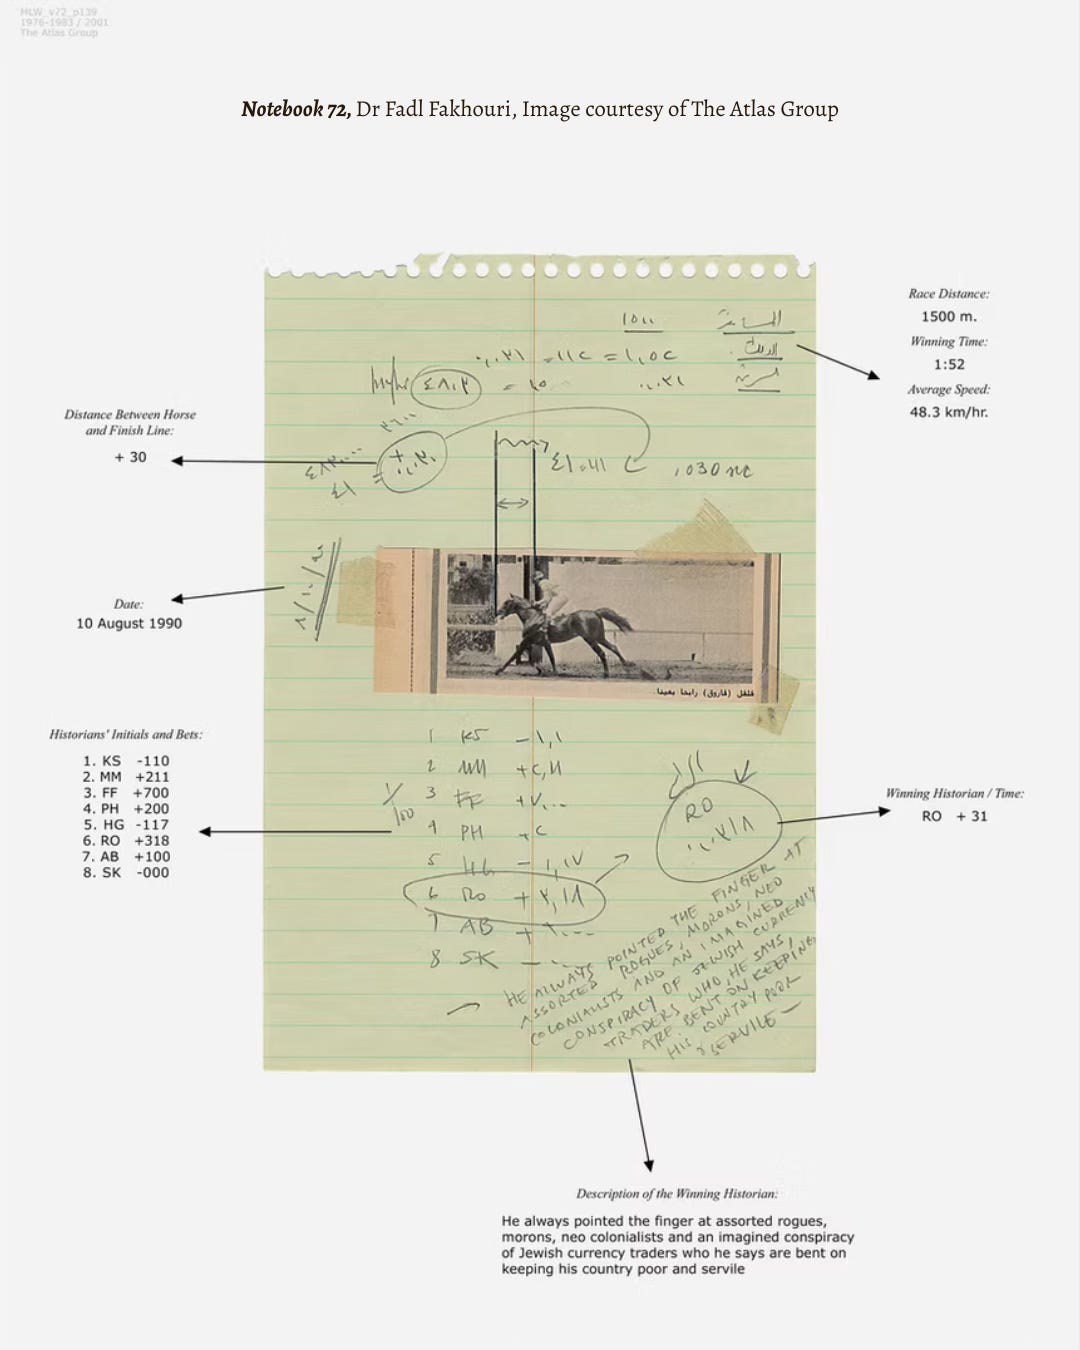 MLW_v72_p139
1976-1983 / 2001
The Atlas Group
Notebook 72, Dr Fadl Fakhouri, Image courtesy of The Atlas Group
Race Distance:
1500 m.
Winning Time:
1:52
Average Speed:
48.3 km/hr.
١٥٠٠ المسافة
Distance Between Horse
and Finish Line:
+ 30
Date:
10 August 1990
فلفل (فاروق) رابحا بعيدا.
Historians' Initials and Bets:
1. KS -110
2. MM +211
3. FF +700
4. PH +200
5. HG -117
6. RO +318
7. AB +100
8. SK -000
1 KS
2 MM
3 FF
4 PH
5 HG
6 RO
7 AB
8 SK
1/100
RO
Winning Historian / Time:
RO + 31
HE ALWAYS POINTED THE FINGER AT
ASSORTED ROGUES, MORONS, NEO
COLONIALISTS AND AN IMAGINED
CONSPIRACY OF JEWISH CURRENCY
TRADERS WHO, HE SAYS,
ARE BENT ON KEEPING
HIS COUNTRY POOR
& SERVILE —
Description of the Winning Historian:
He always pointed the finger at assorted rogues,
morons, neo colonialists and an imagined conspiracy
of Jewish currency traders who he says are bent on
keeping his country poor and servile